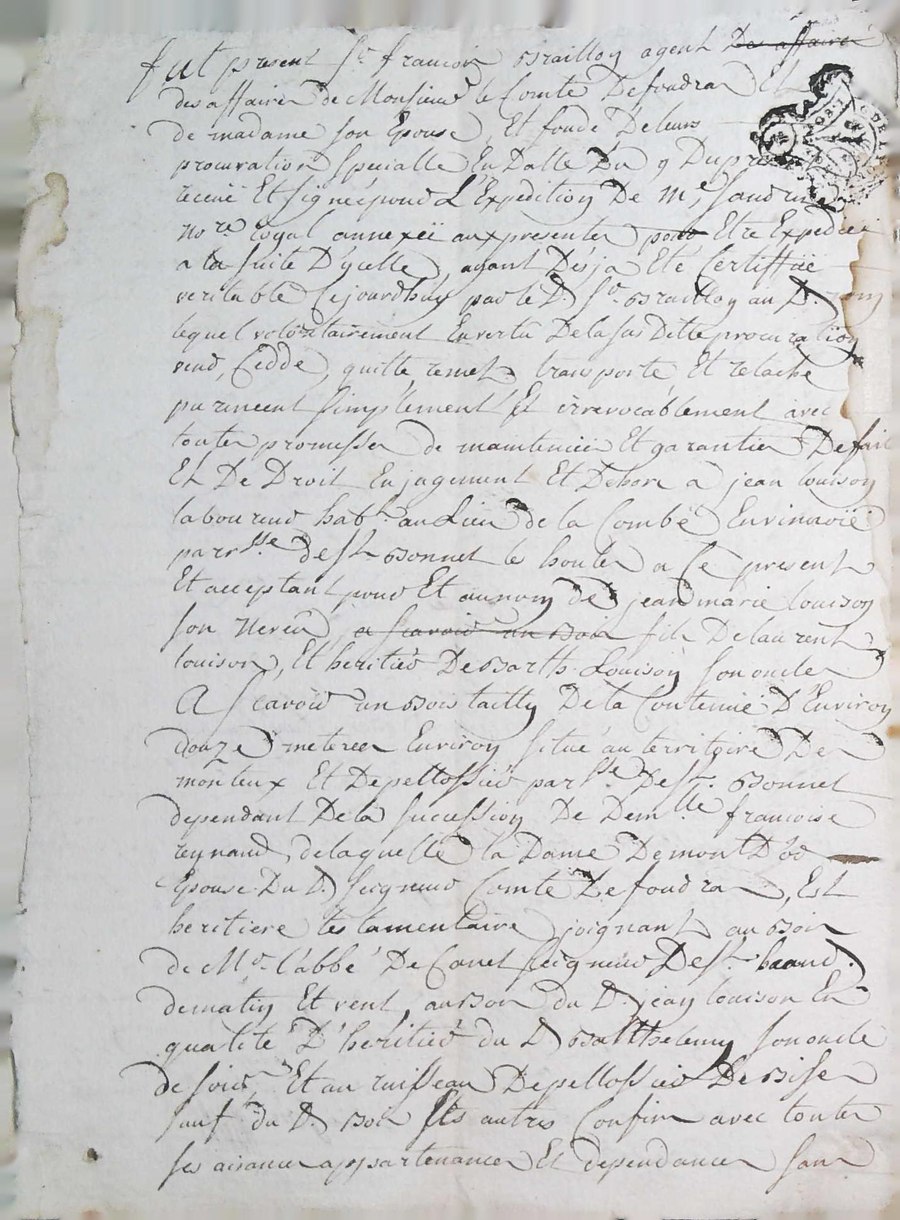 fut present Sr francois Brailloy agent Des affaire
des affaire de Monsieur le Comte Defoudra Et
de madame son Epouse, Et fondé Deleurs
procuration specialle En Datte Du 9 Du
recüe Et signée pour L'Expedition De Me,
nore Royal annexéë aux presenter pour Etre Expediée
a la suite D'ycelle, ayant Desja Eté Certiffiéë
veritable Cejourdhuy par le D. Sr. Brailloy au D.
lequel volontairement En vertu De la sus Ditte procuration
vend, Cedde, quitte remet, transporte, Et relache
purement simplement Et irrevocablement avec
touter promesser de maintenir Et garantir De fait
Et De Droit En jugement Et Dehors a jean louison
laboureur habt. au Lieu de la Combe
parrsse de St Bonnet le a Ce present
Et acceptant pour Et au nom de jean marie louison
son Neveu a scavoir un Bois fils De laurent
louison, Et heritier De Barth. Louison son oncle
A scavoir un Bois tailly De la Contenüe D'Environ
douze meteree Environ situé au territoire De
monteux Et Depellossier parsse De St. Bonnet
dependant De la sucession De Demlle francoise
reynaud, de laquelle la Dame Demont D'or
Epouse Du D. seigneur Comte De foudra, Est
heritiere testamentaire joignant au Bois
de Mr. l'abbé De Canet seigneur De St.
de matin Et vent, au Bois du D. jean louison En
qualité D'heritier du D Barthelemy son oncle
de soir, Et au ruisseau Depellossier De Bise
sauf du D. Bois ses autres Confins avec touter
ses aisance appartenancer Et dependancer sans